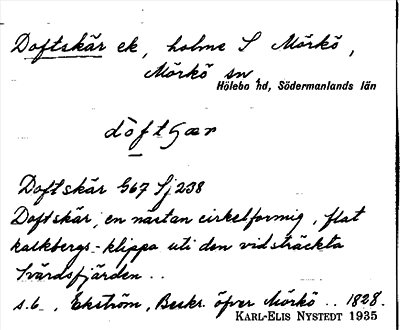 Doftskär ek, holme S Mörkö,
Mörkö sn,
Hölebo hd, Södermanlands län
döftʃær
Doftskär G67 Sj 238
Doftskär, en nästan cirkelformig, flat
kalkbergs-klippa uti den vidsträckta
Svärdsfjärden..
s.6, Ekström, Beskr. öfver Mörkö.. 1828.
KARL-ELIS NYSTEDT 1935